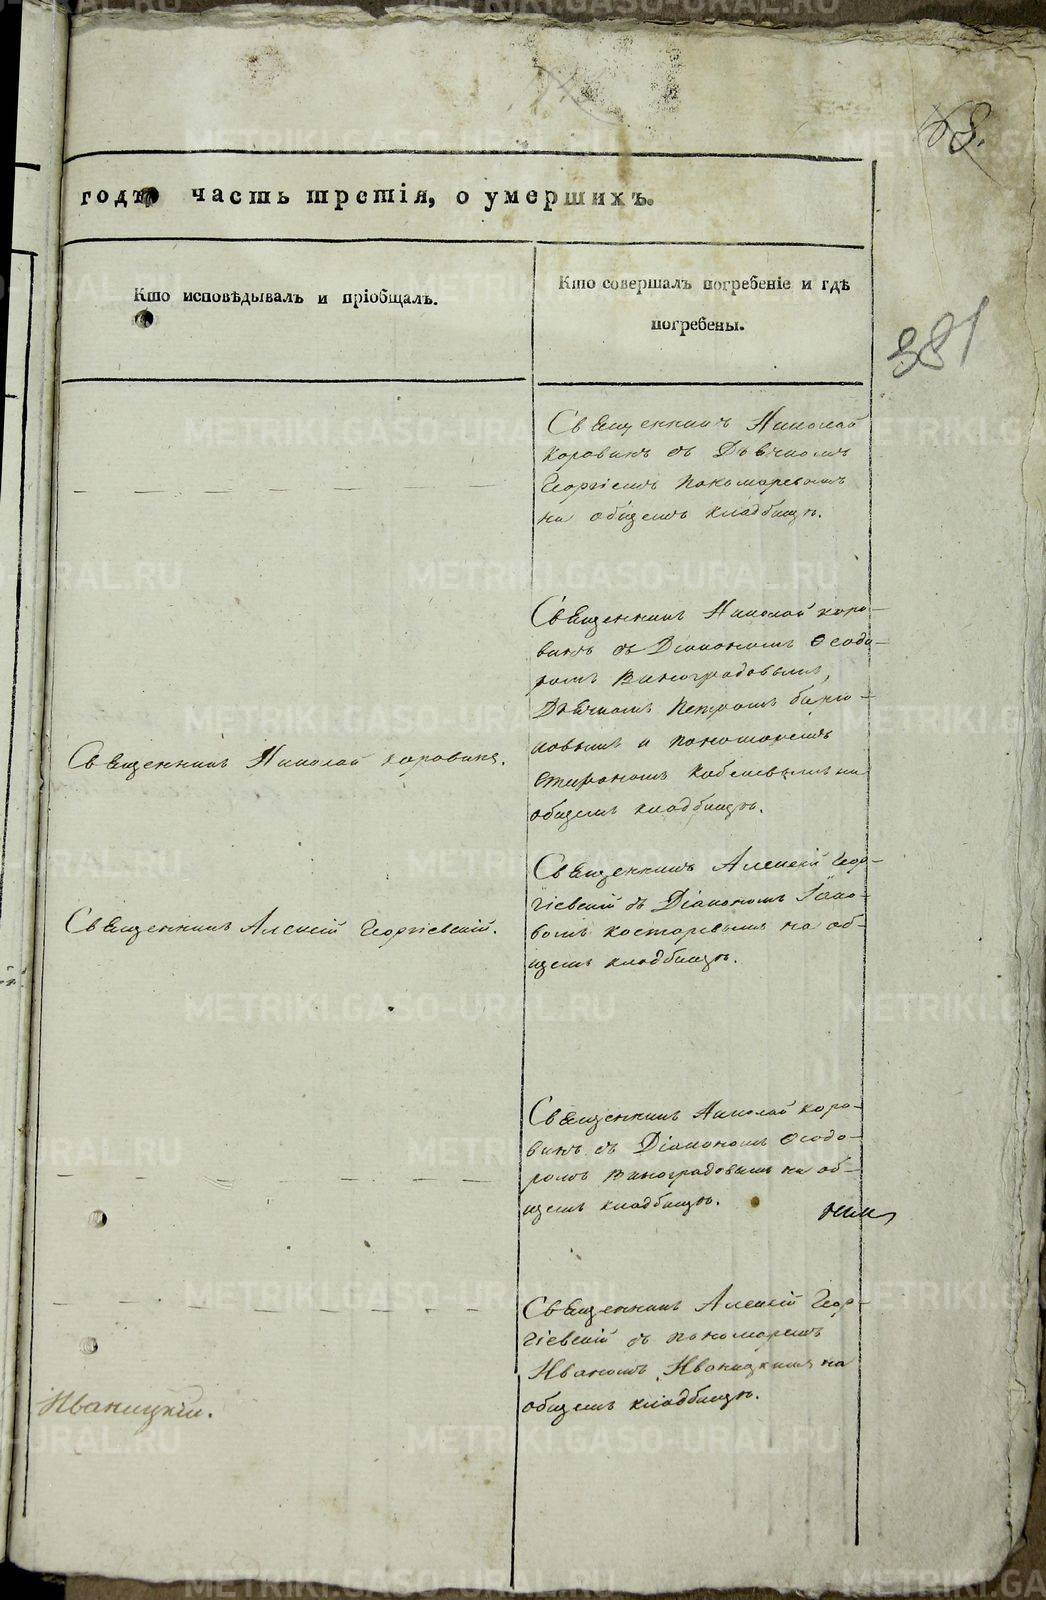 68.
годъ часть третія, о умершихъ.
Кто исповѣдывалъ и пріобщалъ.
Кто совершалъ погребеніе и гдѣ
погребены.
381
Священникъ Николай
Коровинъ съ Дьячкомъ
Георгіемъ Пономаревымъ
на общемъ кладбищѣ.
Священникъ Николай Коровинъ.
Священникъ Николай Коро-
винъ съ Діакономъ Ѳеодо-
ромъ Виноградовымъ,
Дьячкомъ Петромъ
и пономаремъ
на
общемъ кладбищѣ.
Священникъ Алексій Георгіевскій.
Священникъ Алексій Геор-
гіевскій съ Діакономъ Іако-
вомъ Костаревымъ на об-
щемъ кладбищѣ.
Священникъ Николай Коро-
винъ съ Діакономъ Ѳеодо-
ромъ Виноградовымъ на об-
щемъ кладбищѣ.
Священникъ Алексій Геор-
гіевскій съ пономаремъ
Иваномъ Иваницкимъ на
общемъ кладбищѣ.
Иваницкій.
METRIKI.GASO-URAL.RU